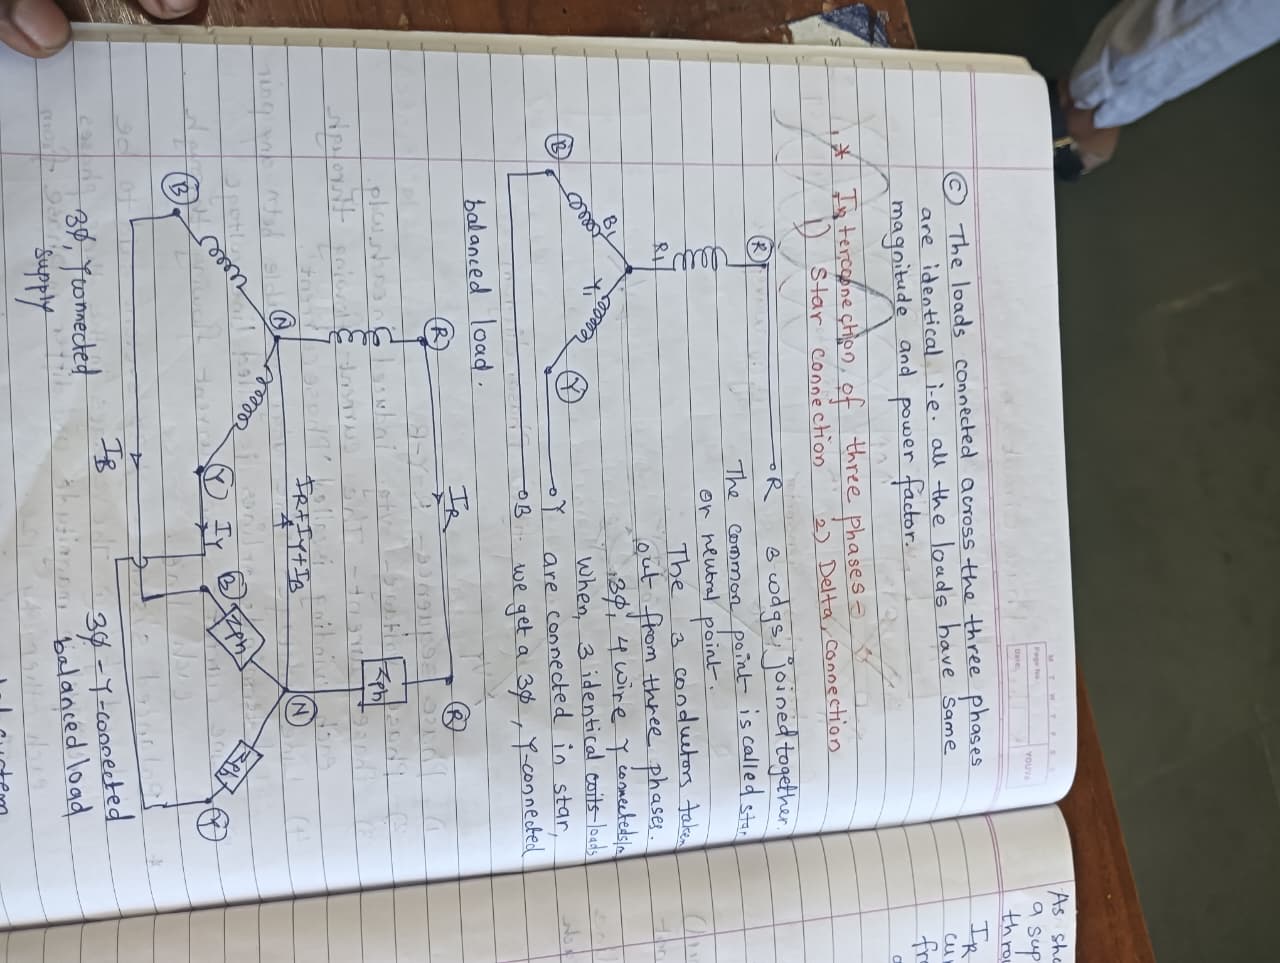 M T W T F S
Page No.:
Date:
YOUVA
Ⓒ The loads connected across the three phases
are identical i.e. all the loads have same
magnitude and power factor.
* Interconnection of three phases-
1) Star connection 2) Delta connection
R
R
3 wdgs, joined together.
The common point is called star
or neutral point.
The 3 conductors taken
out from three phases.
3ϕ, 4 wire Y connected s/m
When, 3 identical loads
are connected in star,
we get a 3ϕ, Y-connected
balanced load.
R1
B1
Y1
B
Y
Y
B
R
IR
R
Zph
N
IR+IY+IB
N
B
Y
IY
B
Zph
Zph
Y
IB
3ϕ, Y connected
supply
3ϕ-Y-connected
balanced load
As
a sup
IR